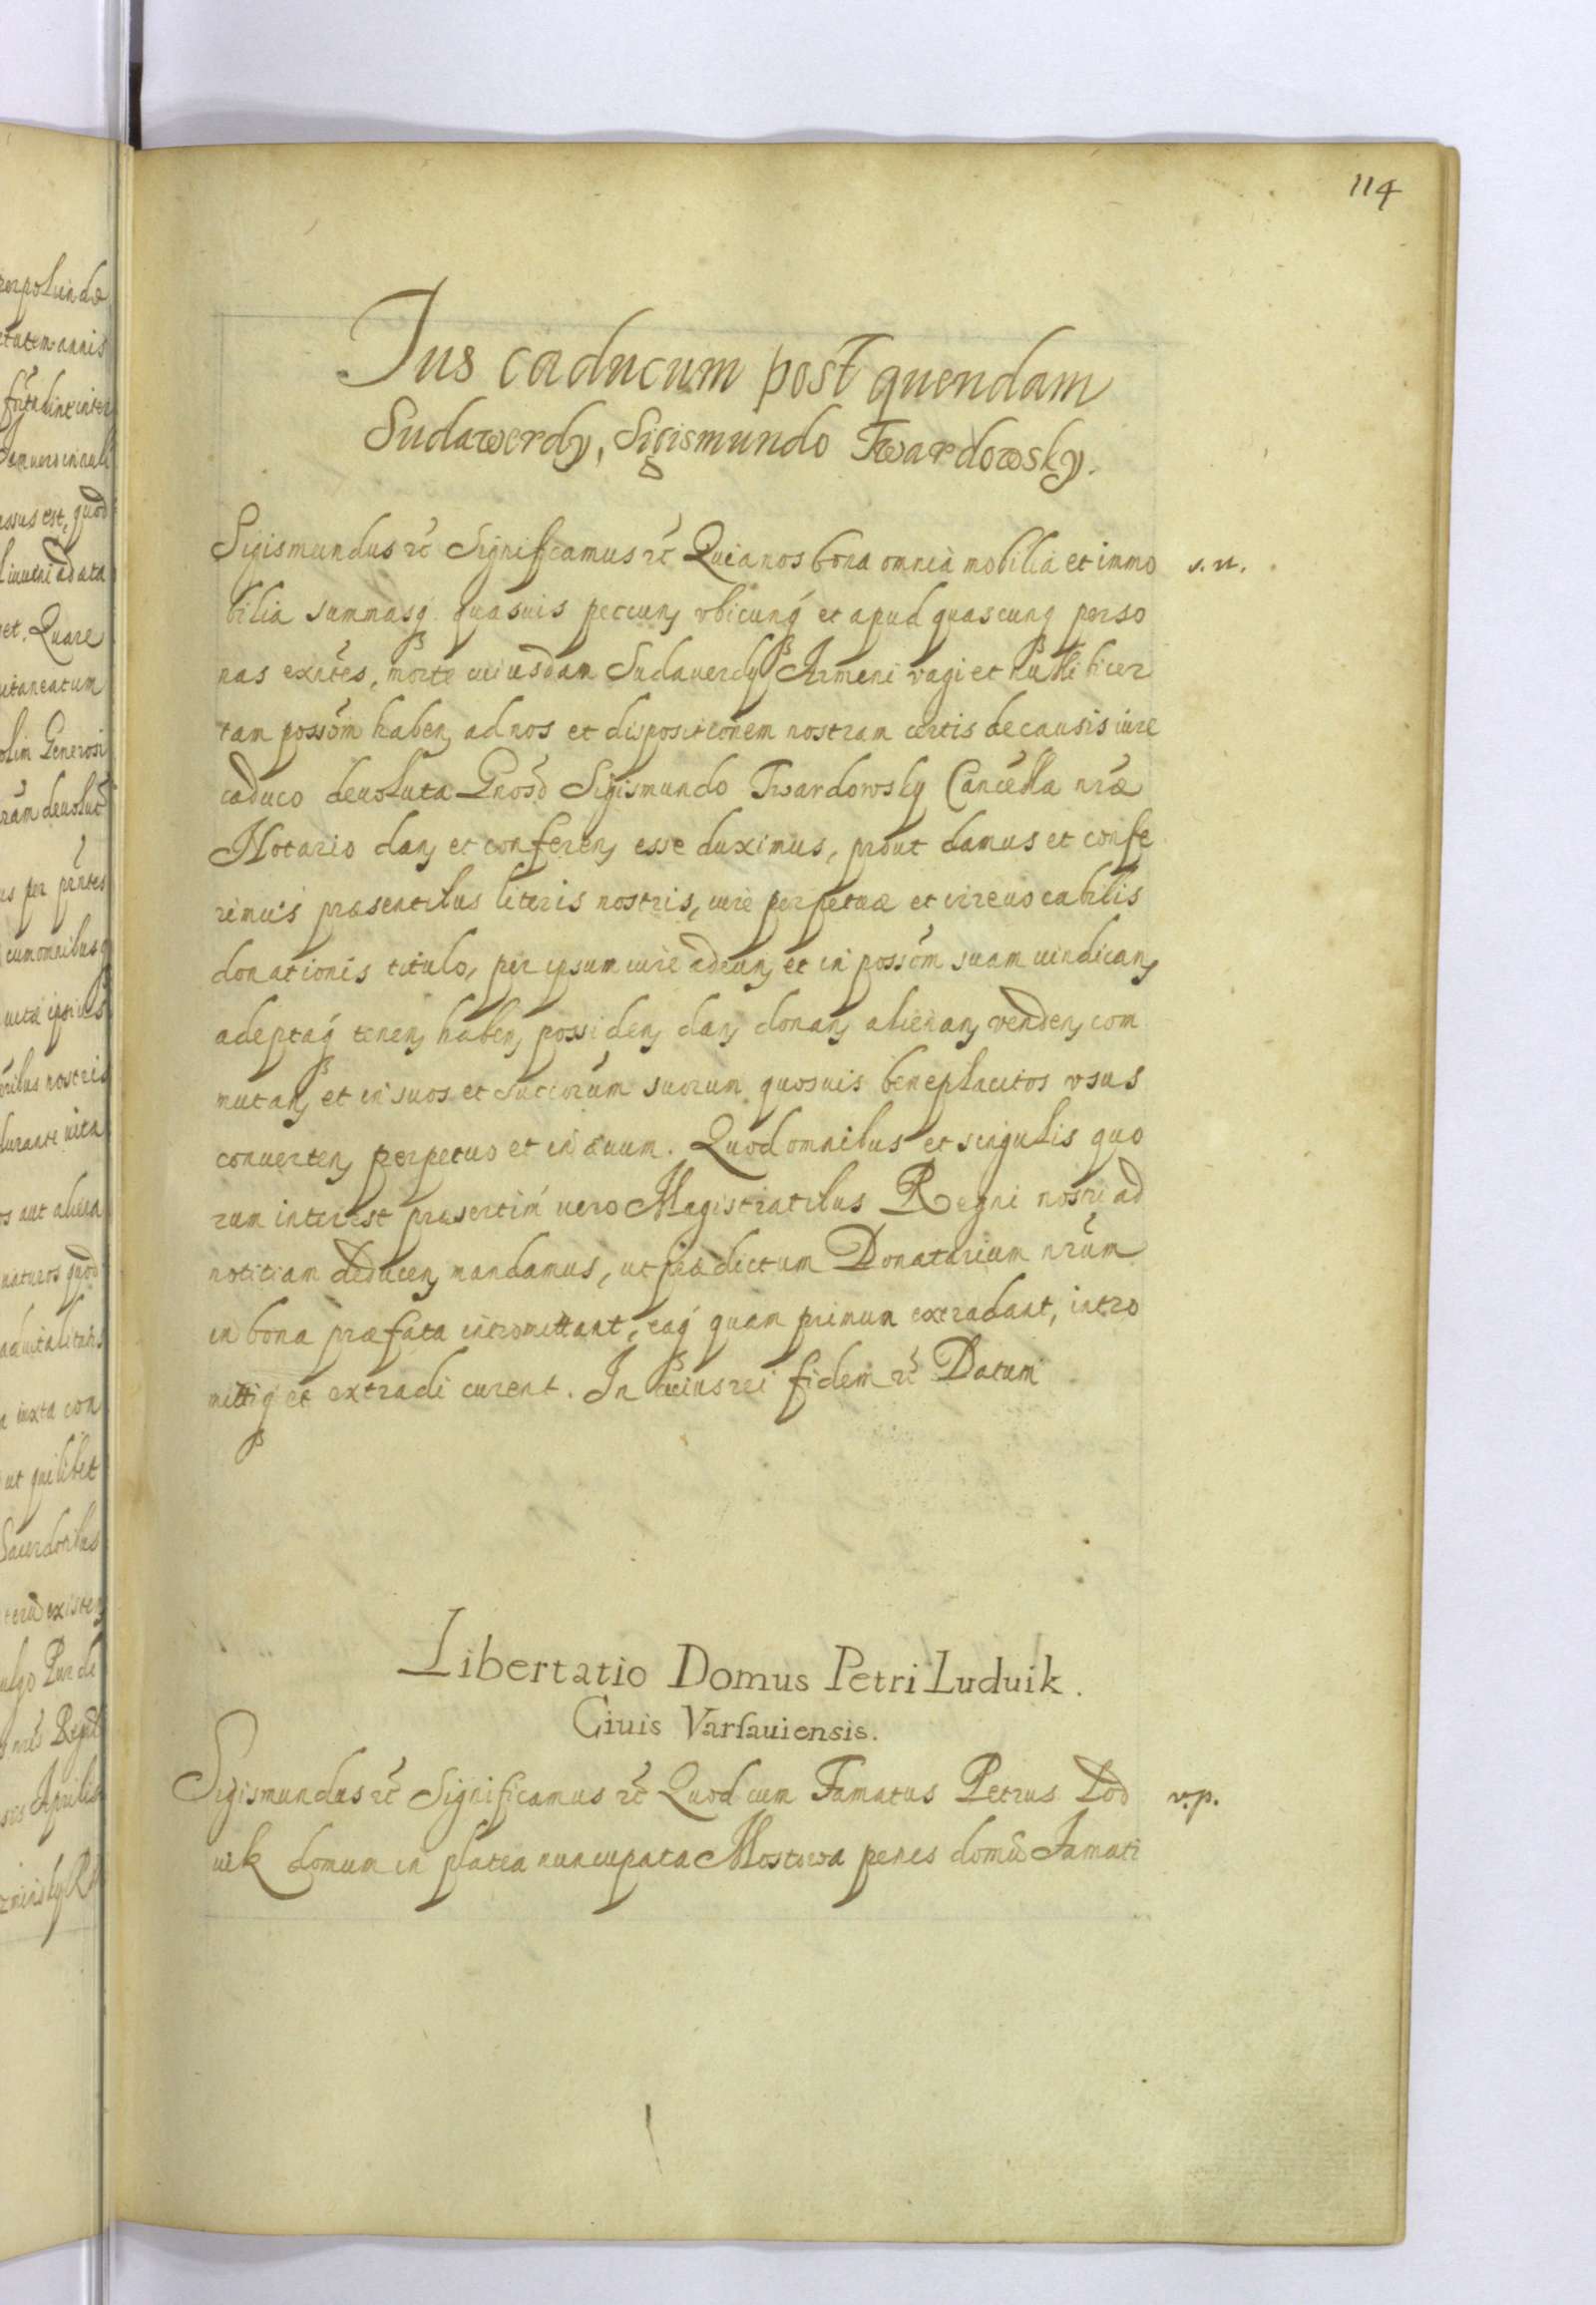 114
Ius caducum post quendam
Sudawerdy, Sigismundo Twardowsky.
Sigismundus rc̃ Significamus rc̃ Quia nos bona omnia mobilia et immo
s. n.
bilia summasq̨ quasuis peccun, vbicunq̨ et apud quascunq̨ perso
nas exñtes, morte cuiusdam Sudauerdy Armeni vagi et nullibi cer
tam possõm haben, ad nos et dispositionem nostram certis de causis iure
caduco deuoluta Gnõso Sigismundo Twardowsky Cancẽlla nr̃æ
Notario dan, et conferen, esse duximus, prout damus et confe
rimus præsentibus literis nostris, iure perpetuæ et irreuocabilis
donationis titulo, per ipsum iure adeun, et in possõm suam uindican,
adeptaq̨ tenen, haben, possiden, dan, donan, alienan, venden, com
mutan, et in suos et succorũm suorum quosuis beneplacitos vsus
conuerten, perpetuo et in æuum. Quod omnibus et singulis quo
rum interest præsertim uero Magistratibus Regni nostri ad
notitiam deducen, mandamus, ut prædictum Donatarium nr̃um
in bona præfata intromittant, eaq̨ quam primum extradant, intro
mittiq̨ et extradi curent. In cuius rei fidem rc̃ Datum
Libertatio Domus Petri Luduik.
Ciuis Varsauiensis.
Sigismundus rc̃ Significamus rc̃ Quod cum Famatus Petrus Lod
v. p.
uik domum in platea nuncupata Mostowa penes domũ Famati